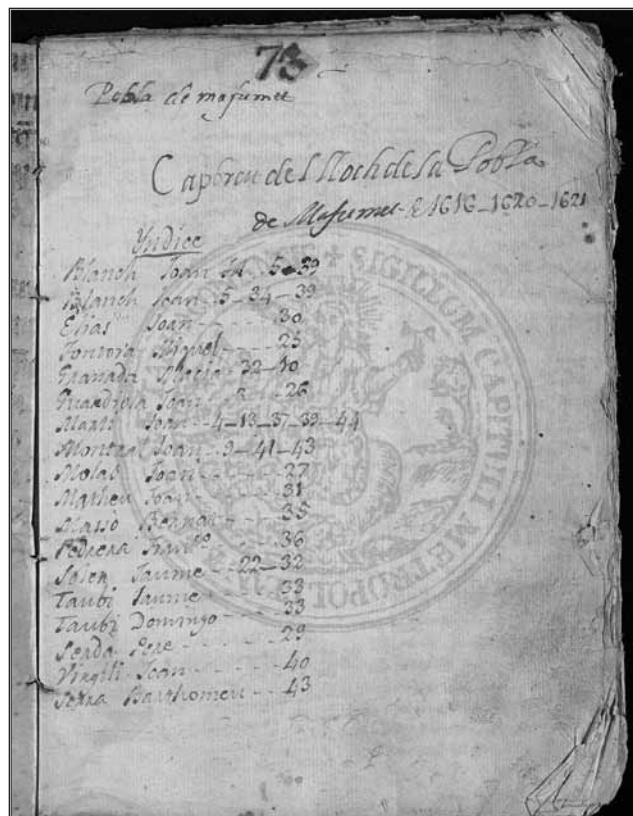 73
Pobla de mafumet
Capbreu del lloch de la Pobla
de Mafumet & 1616_1620_1621
Yndice
Blanch Joan M. 5-39
Blanch Joan 5-34-39
Elias Joan - - - - 30
Fontova Miquel - - - 25
Granada Maria - 32-40
Guardiola Joan - - - 26
Marti Joan - - 4-13-37-39-44
Montral Joan - 9-41-43
Molas Joan - - - - 27
Matheu Joan - - - 31
Masso Bernat - - - 35
Pedrera - - - 36
Soler Jaume - - 22-32
Taubi Jaume - - - 33
Taubi Domingo - - - 33
Serda Pere - - - - 29
Virgili Joan - - - - 40
Serra Barthomeu - - 43
SIGILLUM CAPITULI METROPOLITANAE